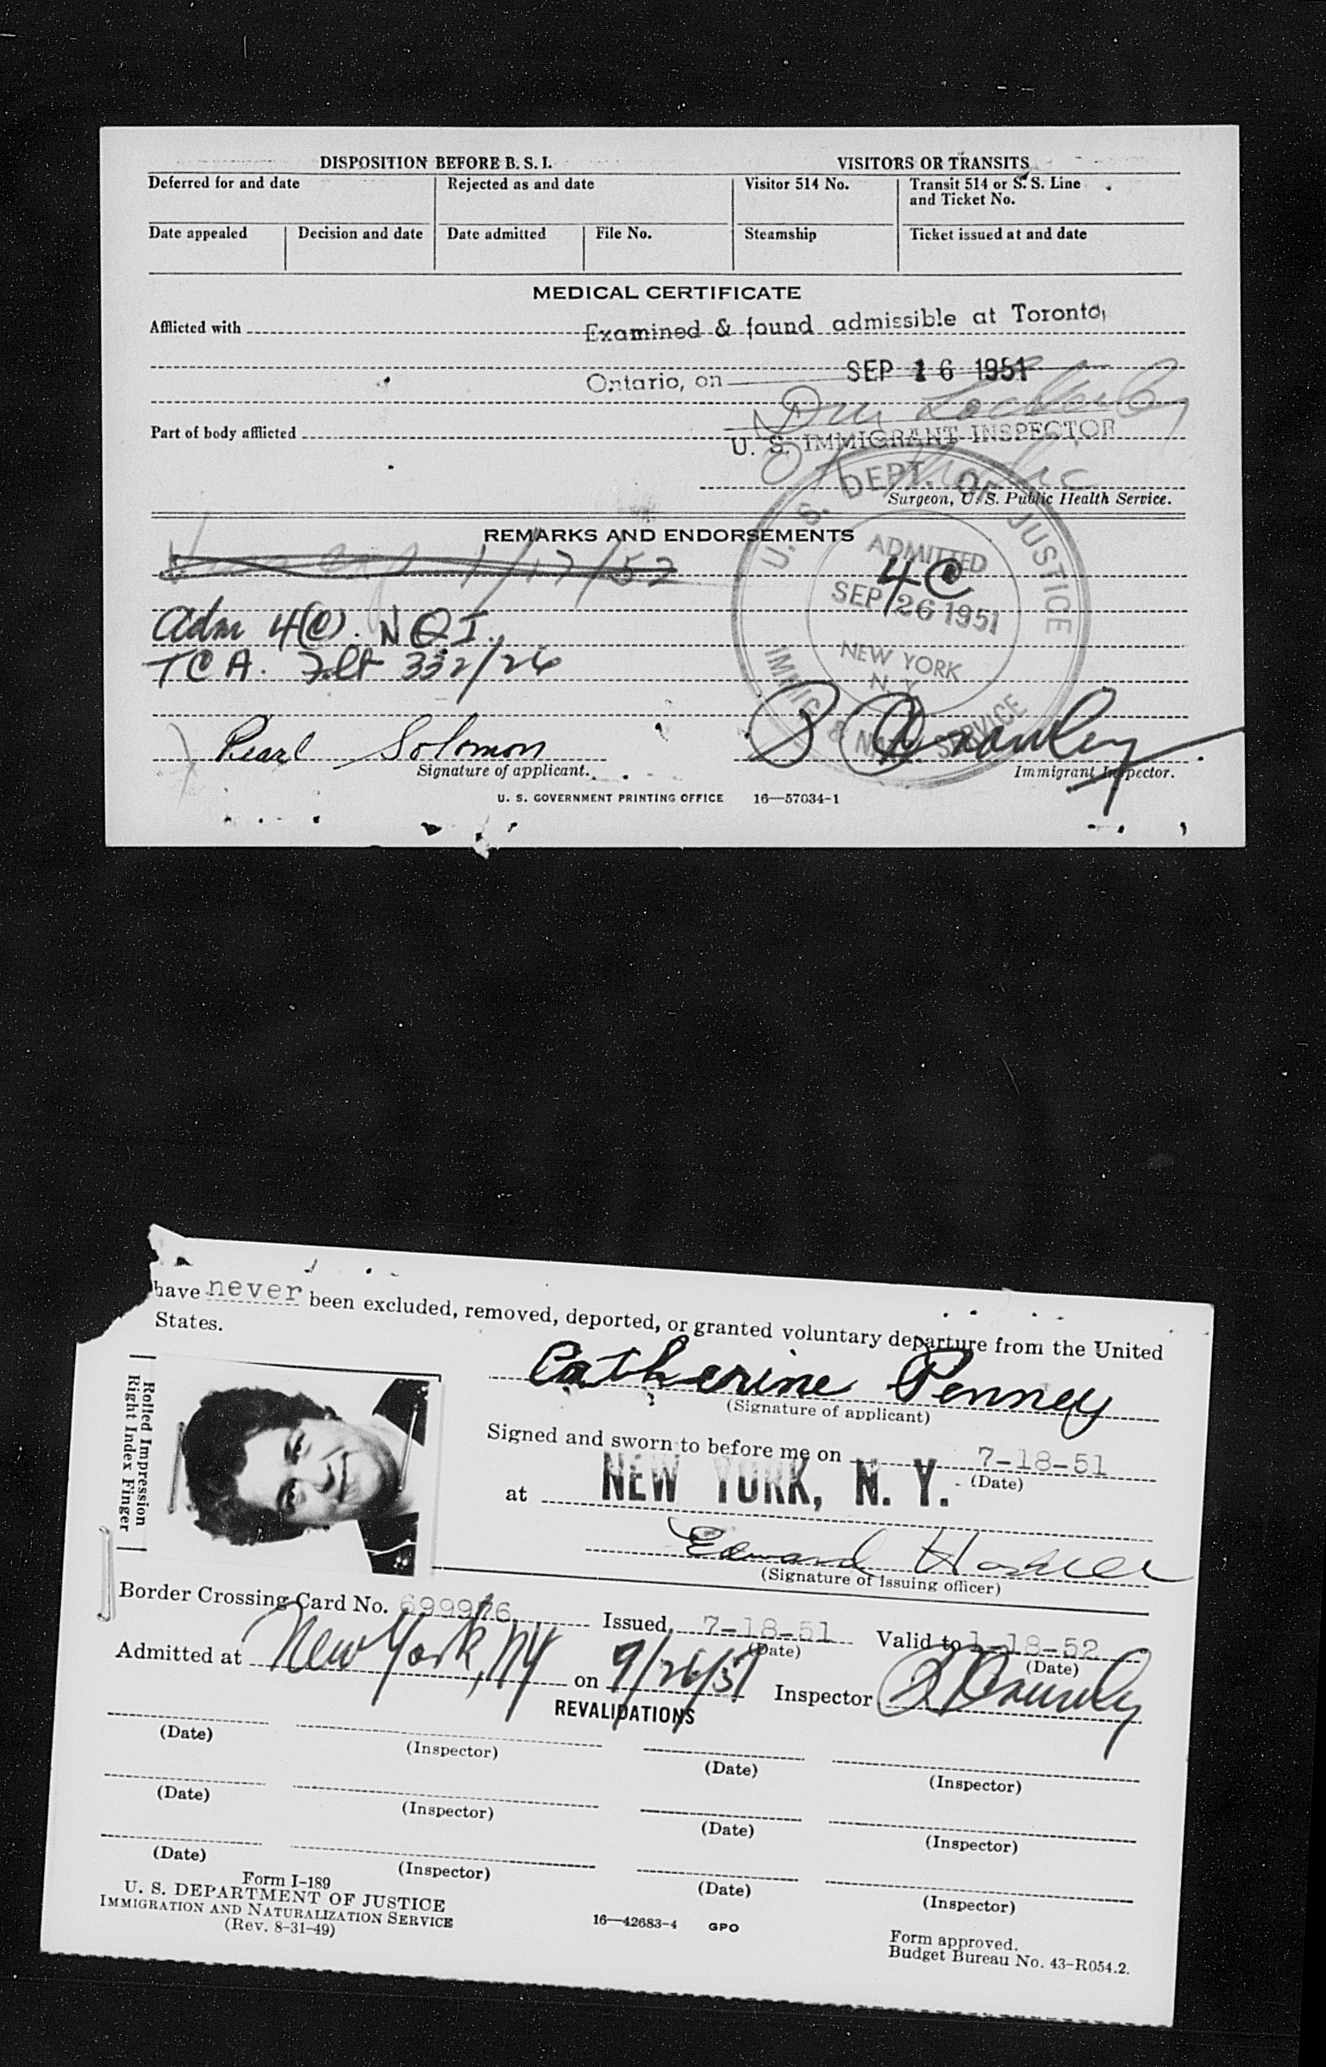 DISPOSITION BEFORE B. S. I. VISITORS OR TRANSITS
Deferred for and date Rejected as and date Visitor 514 No. Transit 514 or S. S. Line
and Ticket No.
Date appealed Decision and date Date admitted File No. Steamship Ticket issued at and date
MEDICAL CERTIFICATE
Afflicted with Examined & found admissible at Toronto,
Ontario, on SEP 16 1951
Part of body afflicted
U. S. IMMIGRANT INSPECTOR
Surgeon, U. S. Public Health Service.
REMARKS AND ENDORSEMENTS
U. S. DEPT. OF JUSTICE
IMMIG. & NAT. SERVICE
ADMITTED
4(C)
SEP 26 1951
NEW YORK
N. Y.
Adm 4(C). N Q I.
TCA. Flt 332/26
Pearl Solomon
Signature of applicant. Immigrant Inspector.
U. S. GOVERNMENT PRINTING OFFICE 16—57034-1
have never been excluded, removed, deported, or granted voluntary departure from the United
States.
Rolled Impression
Right Index Finger
Catherine Penney
(Signature of applicant)
Signed and sworn to before me on 7-18-51
(Date)
at NEW YORK, N. Y.
Edward
(Signature of issuing officer)
Border Crossing Card No. Issued 7-18-51 Valid to 1-18-52
(Date) (Date)
Admitted at New York, NY on 9/26/51 Inspector
REVALIDATIONS
(Date) (Inspector) (Date) (Inspector)
(Date) (Inspector) (Date) (Inspector)
(Date) (Inspector) (Date) (Inspector)
Form I-189
U. S. DEPARTMENT OF JUSTICE
IMMIGRATION AND NATURALIZATION SERVICE
(Rev. 8-31-49)
16—42683-4 GPO
Form approved.
Budget Bureau No. 43-R054.2.